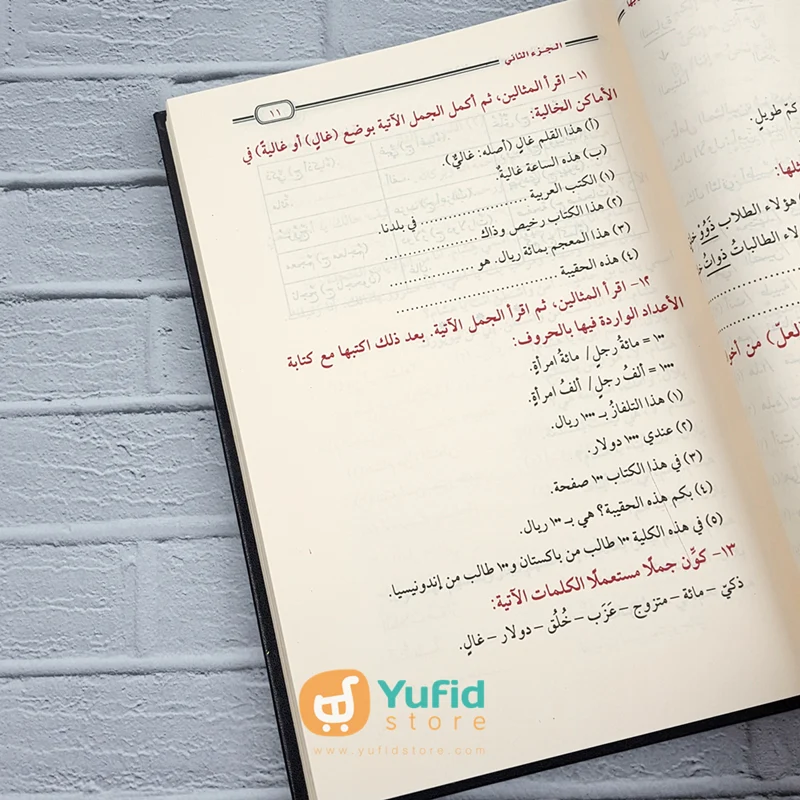 الجزء الثاني
١١
١١- اقرأ المثالين، ثم أكمل الجمل الآتية بوضع (غالٍ) أو غاليةٌ) في
الأماكن الخالية:
(أ) هذا القلم غالٍ (أصله: غاليٌ).
(ب) هذه الساعة غاليةٌ.
(١) الكتب العربية ........................ في بلدنا.
(٢) هذا الكتاب رخيص وذاك ........................
(٣) هذا المعجم بمائة ريال. هو ........................
(٤) هذه الحقيبة ........................
١٢- اقرأ المثالين، ثم اقرأ الجمل الآتية. بعد ذلك اكتبها مع كتابة
الأعداد الواردة فيها بالحروف:
١٠٠ = مائةُ رجلٍ/ مائةُ امرأةٍ.
١٠٠٠ = ألفُ رجلٍ/ ألفُ امرأةٍ.
(١) هذا التلفازُ بـ ١٠٠٠ ريال.
(٢) عندي ١٠٠٠ دولار.
(٣) في هذا الكتاب ١٠٠ صفحة.
(٤) بكم هذه الحقيبة؟ هي بـ ١٠٠ ريال.
(٥) في هذه الكلية ١٠٠ طالب من باكستان و١٠٠ طالب من إندونيسيا.
١٣- كوِّن جملًا مستعملًا الكلمات الآتية:
ذكيّ – مائة – متزوج – عَزَب – خُلُق – دولار – غالٍ.
كمّ طويلٍ.
مثلها:
هؤلاء الطلاب ذَوُو
الطالباتُ ذواتُ
لعلّ) من
Yufid
store
www.yufidstore.com